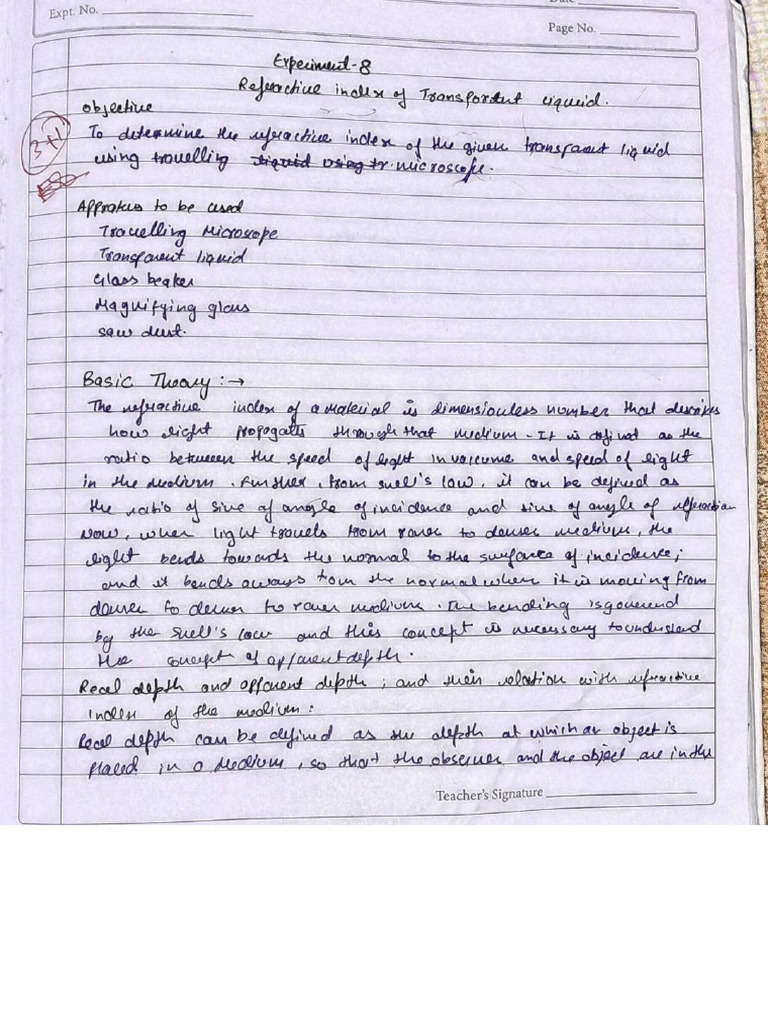 Date
Expt. No.
Page No.
Experiment-8
Refractive index of Transportent Liquid.
Objective
3+1
To determine the refractive index of the given transparent liquid
using travelling liquid using tr. microscope.
Appratus to be used
Travelling Microscope
Transparent liquid
Glass beaker
Magnifying glass
saw dust.
Basic Theory :→
The refractive index of a material is dimensionless number that describes
how light propogatts through that medium. It is defined as the
ratio between the speed of light in vaccume and speed of light
in the medium. Further, from snell's law, it can be defined as
the ratio of sine of angle of incidence and sine of angle of refraction
Now, when light travels from rarer to denser medium, the
light bends towards the normal to the surface of incidence;
and it bends aways from the normal when it is moving from
denser to denser to rarer medium. The bending is governd
by the Snell's law and this concept is necessary to understand
the concept of apparent depth.
Real depth and apparent depth ; and their relation with refractive
index of the medium :
Real depth can be defined as the depth at which an object is
placed in a medium, so that the observer and the object are in the
Teacher's Signature